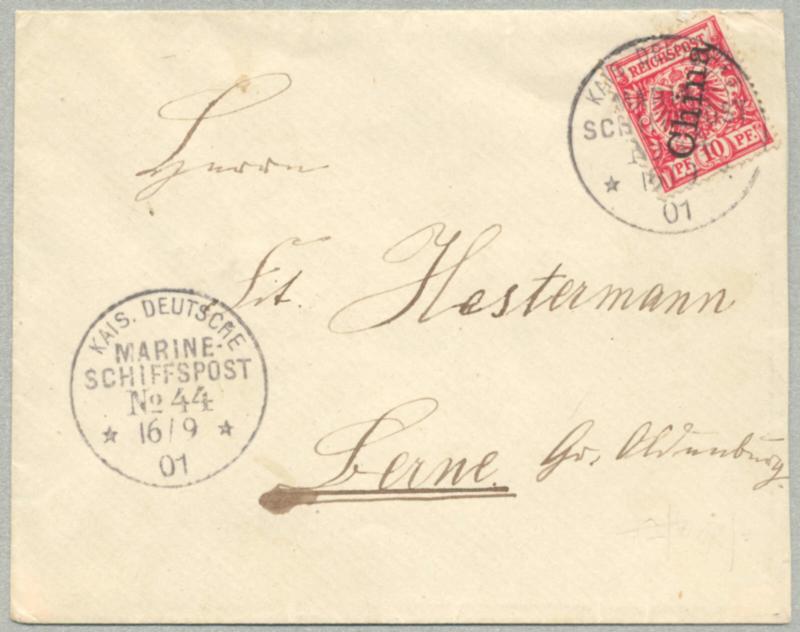 REICHSPOST
China
PF. 10 PF.
KAIS. DE
SCH
01
Herrn
Hestermann
KAIS. DEUTSCHE
MARINE-
SCHIFFSPOST
No 44
16/9
01
Berne. Gr. Oldenburg.